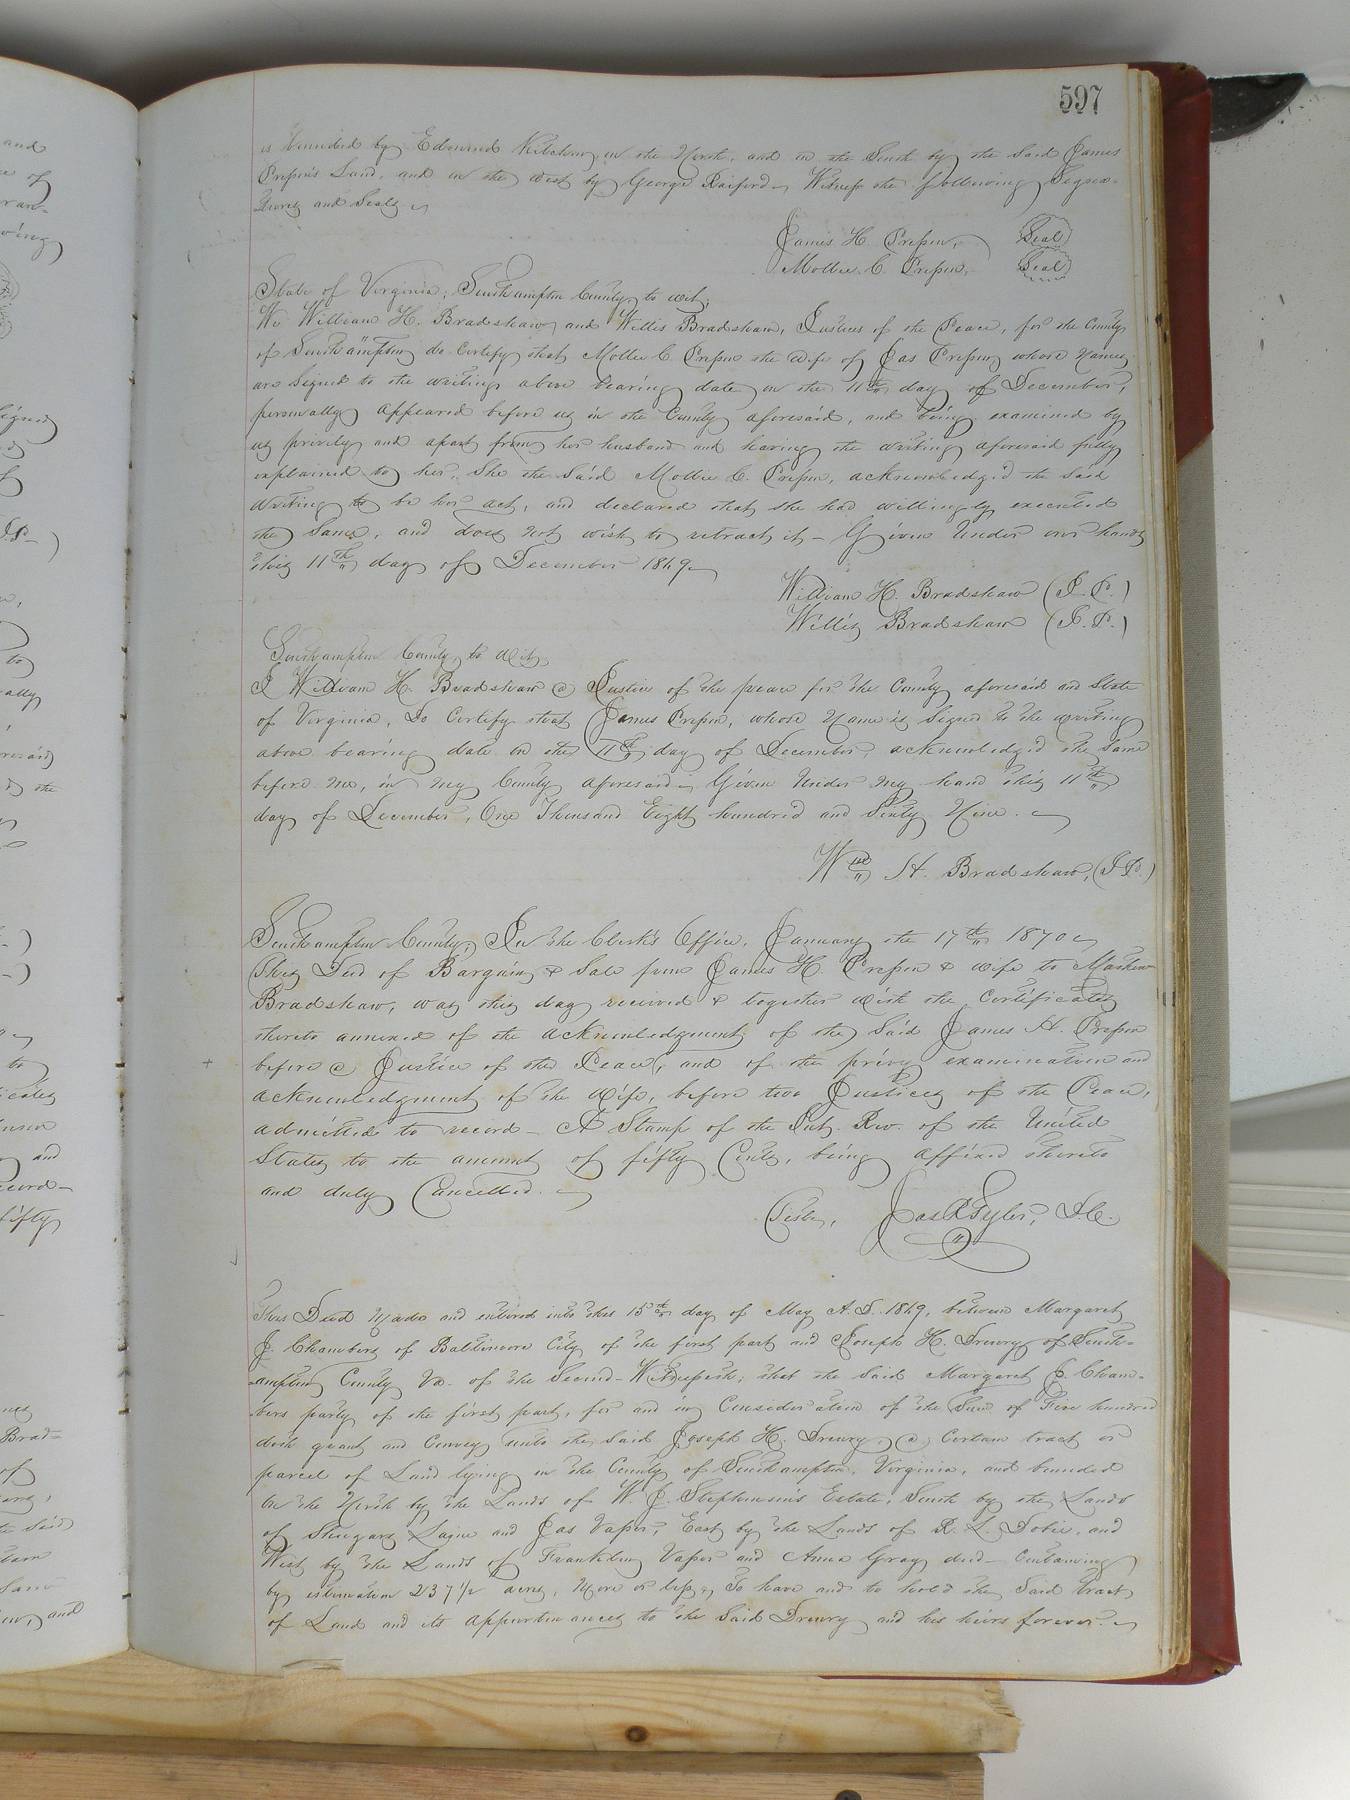 597
is bounded by Edmund Kitchen, on the North, and on the South by the Said James
Presson's Land, and on the west by George Raiford. Witness the following Signa-
tures and Seals
James H. Presson, Seal
Mollie C. Presson, Seal
State of Virginia; Southampton County, to wit;
We William H. Bradshaw, and Willis Bradshaw, Justices of the Peace, for the County
of Southampton do Certify that Mollie C Presson the wife of Jas Presson, whose Names
are Signed to the writing above bearing date on the 11th day of December,
personally appeared before us in the County aforesaid, and being examined by
us privily and apart from her husband and having the writing aforesaid fully
explained to her, She the Said Mollie C. Presson, acknowledg'd the Said
writing to be her act, and declared that she had willingly executed
the Same, and does not wish to retract it - Given Under our hands
this 11th day of December 1869
William H. Bradshaw (J.P.)
Willis Bradshaw (J.P.)
Southampton County, to wit,
I William H. Bradshaw a Justice of the peace for the County aforesaid and State
of Virginia, Do Certify that James Presson, whose Name is Signed to the writing
above bearing date on the 11th day of December, acknowledg'd the Same
before me, in my County aforesaid - Given Under my hand this 11th
day of December, One Thousand Eight hundred and Sixty Nine.
Wm H. Bradshaw, (J.P.)
Southampton County, In the Clerk's Office, January the 17th 1870
This Deed of Bargain & Sale from James H. Presson & wife to Mathew
Bradshaw, was this day received & together with the Certificates
thereto annexed of the acknowledgment of the Said James H. Presson
before a Justice of the Peace, and of the privy examination and
acknowledgment of the wife, before two Justices of the Peace,
admitted to record - A Stamp of the Int. Rev. of the United
States to the amount of fifty Cents, being affixed thereto
and duly Cancelled.
Teste, Jas R Tyler, D.C.
This Deed Made and entered into this 15th day of May A.D. 1869, between Margaret
J. Chambers of Baltimore City of the first part and Joseph H. Drewry of South-
ampton County Va. of the Second - Witnesseth; that the Said Margaret J. Cham-
bers party of the first part, for and in Consideration of the Sum of Five hundred
doth grant and Convey unto the Said Joseph H. Drewry, a Certain tract or
parcel of Land lying in the County of Southampton, Virginia, and bounded
On the North by the Lands of W. J. Stephenson's Estate, South by the Lands
of Laine and Jas Vaser, East by the Lands of R. L. Dobie, and
West by the Lands of Franklin Vaser and Anna Gray dec'd - Containing
by estimation 237 1/2 acres, More or less, To have and to hold the Said tract
of Land and its appurtenances to the Said Drewry and his heirs forever.